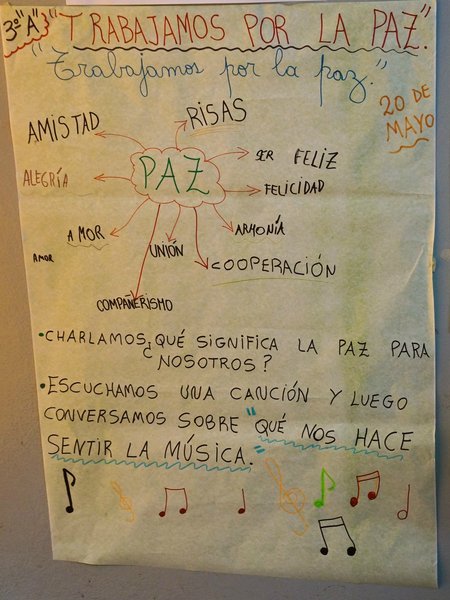 3º"A" "TRABAJAMOS POR LA PAZ".
"Trabajamos por la paz."
20 DE
MAYO
RISAS
AMISTAD
SER FELIZ
PAZ
ALEGRÍA
FELICIDAD
AMOR
ARMONÍA
UNIÓN
AMOR
COOPERACIÓN
COMPAÑERISMO
•CHARLAMOS ¿QUÉ SIGNIFICA LA PAZ PARA
NOSOTROS?
•ESCUCHAMOS UNA CANCIÓN Y LUEGO
CONVERSAMOS SOBRE "QUÉ NOS HACE
SENTIR LA MÚSICA."